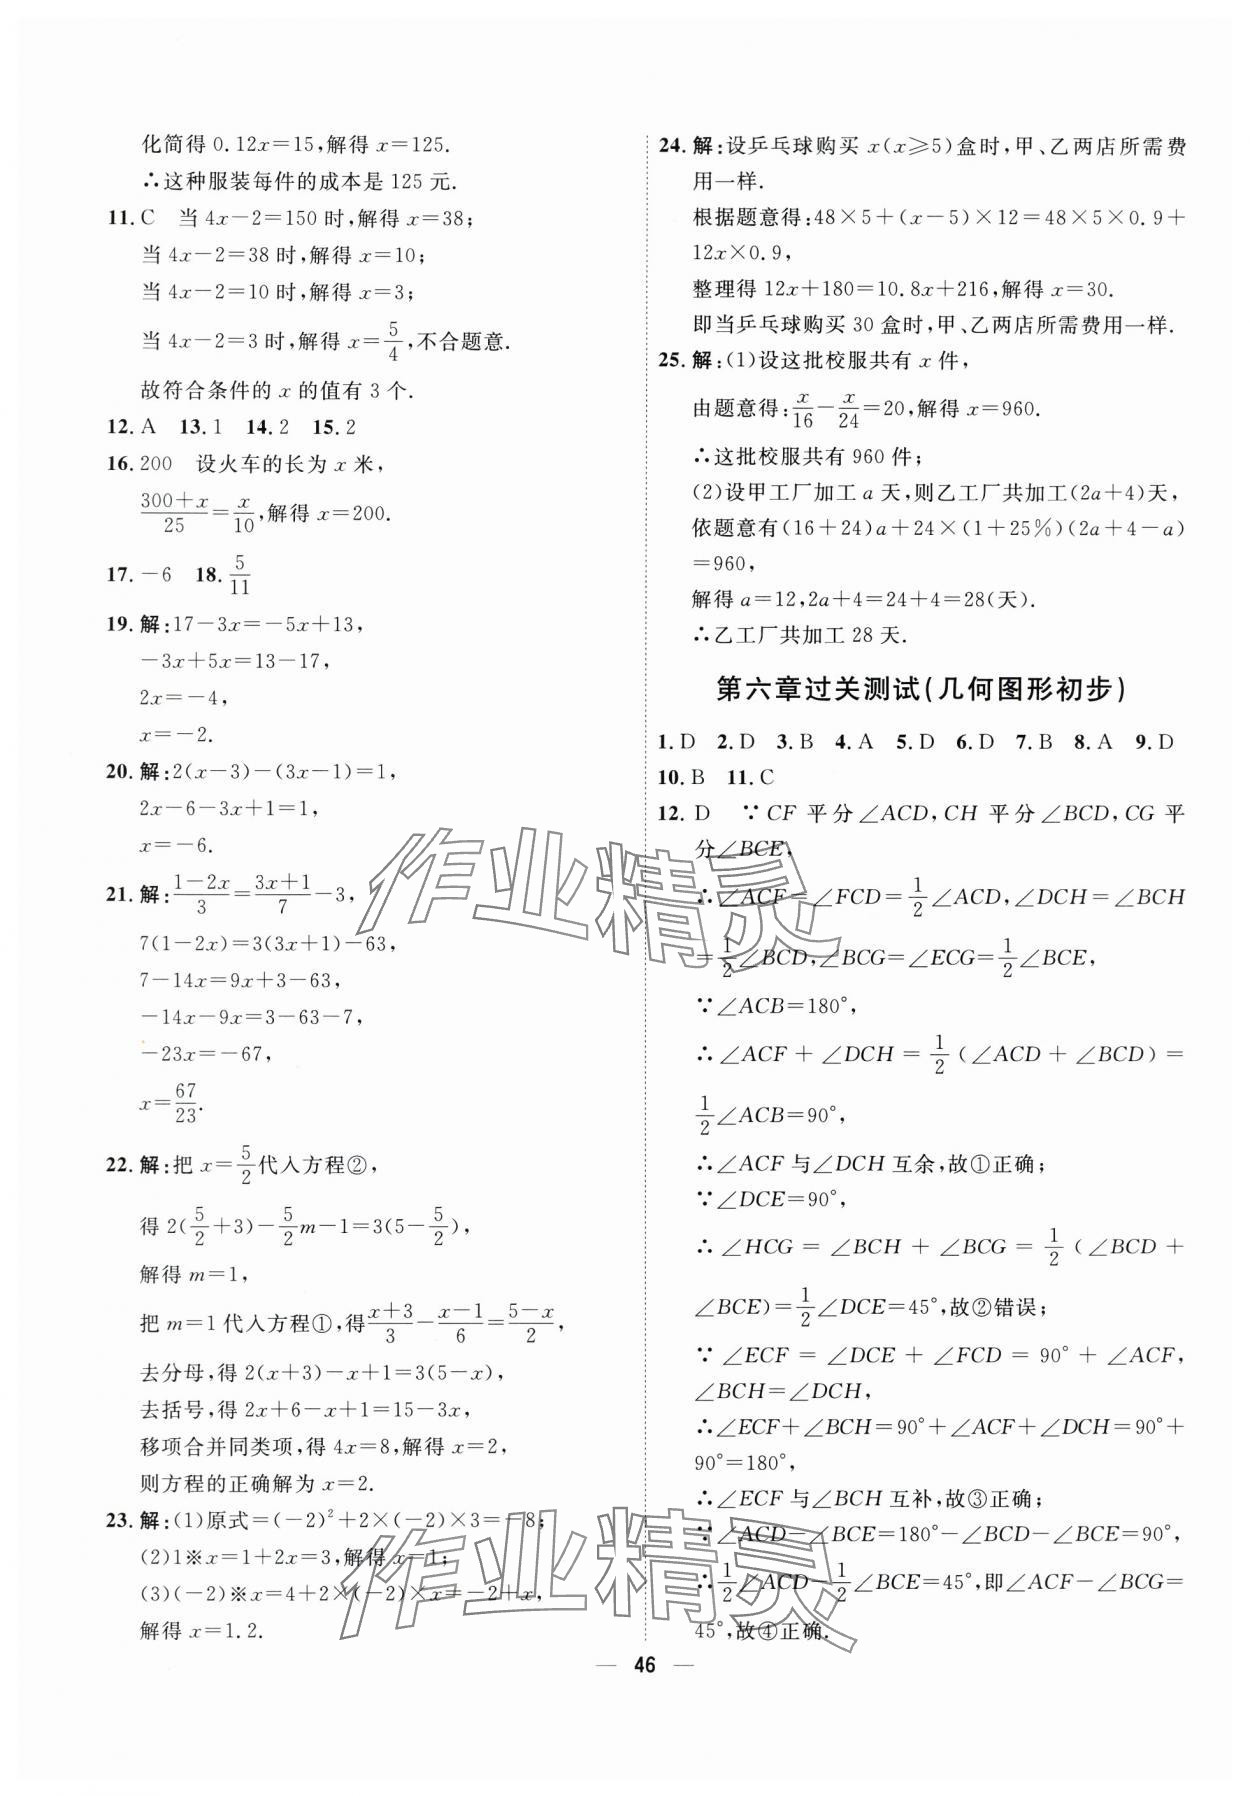 化简得 0.12x=15,解得 x=125.
∴这种服装每件的成本是 125 元.
11. C 当 4x-2=150 时,解得 x=38;
当 4x-2=38 时,解得 x=10;
当 4x-2=10 时,解得 x=3;
当 4x-2=3 时,解得 x=5/4,不合题意.
故符合条件的 x 的值有 3 个.
12. A 13. 1 14. 2 15. 2
16. 200 设火车的长为 x 米,
(300+x)/25=x/10,解得 x=200.
17. -6 18. 5/11
19. 解:17-3x=-5x+13,
-3x+5x=13-17,
2x=-4,
x=-2.
20. 解:2(x-3)-(3x-1)=1,
2x-6-3x+1=1,
x=-6.
21. 解:(1-2x)/3=(3x+1)/7-3,
7(1-2x)=3(3x+1)-63,
7-14x=9x+3-63,
-14x-9x=3-63-7,
-23x=-67,
x=67/23.
22. 解:把 x=5/2代入方程②,
得 2(5/2+3)-5/2m-1=3(5-5/2),
解得 m=1,
把 m=1 代入方程①,得(x+3)/3-(x-1)/6=(5-x)/2,
去分母,得 2(x+3)-x+1=3(5-x),
去括号,得 2x+6-x+1=15-3x,
移项合并同类项,得 4x=8,解得 x=2,
则方程的正确解为 x=2.
23. 解:(1)原式=(-2)²+2×(-2)×3=-8;
(2)1※x=1+2x=3,解得 x=1;
(3)(-2)※x=4+2×(-2)×x=-2+x,
解得 x=1.2.
24. 解:设乒乓球购买 x(x≥5)盒时,甲、乙两店所需费
用一样.
根据题意得:48×5+(x-5)×12=48×5×0.9+
12x×0.9,
整理得 12x+180=10.8x+216,解得 x=30.
即当乒乓球购买 30 盒时,甲、乙两店所需费用一样.
25. 解:(1)设这批校服共有 x 件,
由题意得:x/16-x/24=20,解得 x=960.
∴这批校服共有 960 件;
(2)设甲工厂加工 a 天,则乙工厂共加工(2a+4)天,
依题意有(16+24)a+24×(1+25%)(2a+4-a)
=960,
解得 a=12,2a+4=24+4=28(天).
∴乙工厂共加工 28 天.
第六章过关测试(几何图形初步)
1. D 2. D 3. B 4. A 5. D 6. D 7. B 8. A 9. D
10. B 11. C
12. D ∵CF 平分∠ACD,CH 平分∠BCD,CG 平
分∠BCE,
∴∠ACF=∠FCD=1/2∠ACD,∠DCH=∠BCH
=1/2∠BCD,∠BCG=∠ECG=1/2∠BCE,
∵∠ACB=180°,
∴∠ACF+∠DCH=1/2(∠ACD+∠BCD)=
1/2∠ACB=90°,
∴∠ACF 与∠DCH 互余,故①正确;
∵∠DCE=90°,
∴∠HCG=∠BCH+∠BCG=1/2(∠BCD+
∠BCE)=1/2∠DCE=45°,故②错误;
∵∠ECF=∠DCE+∠FCD=90°+∠ACF,
∠BCH=∠DCH,
∴∠ECF+∠BCH=90°+∠ACF+∠DCH=90°+
90°=180°,
∴∠ECF 与∠BCH 互补,故③正确;
∵∠ACD-∠BCE=180°-∠BCD-∠BCE=90°,
∴1/2∠ACD-1/2∠BCE=45°,即∠ACF-∠BCG=
45°,故④正确.
— 46 —
作业精灵
作业精灵